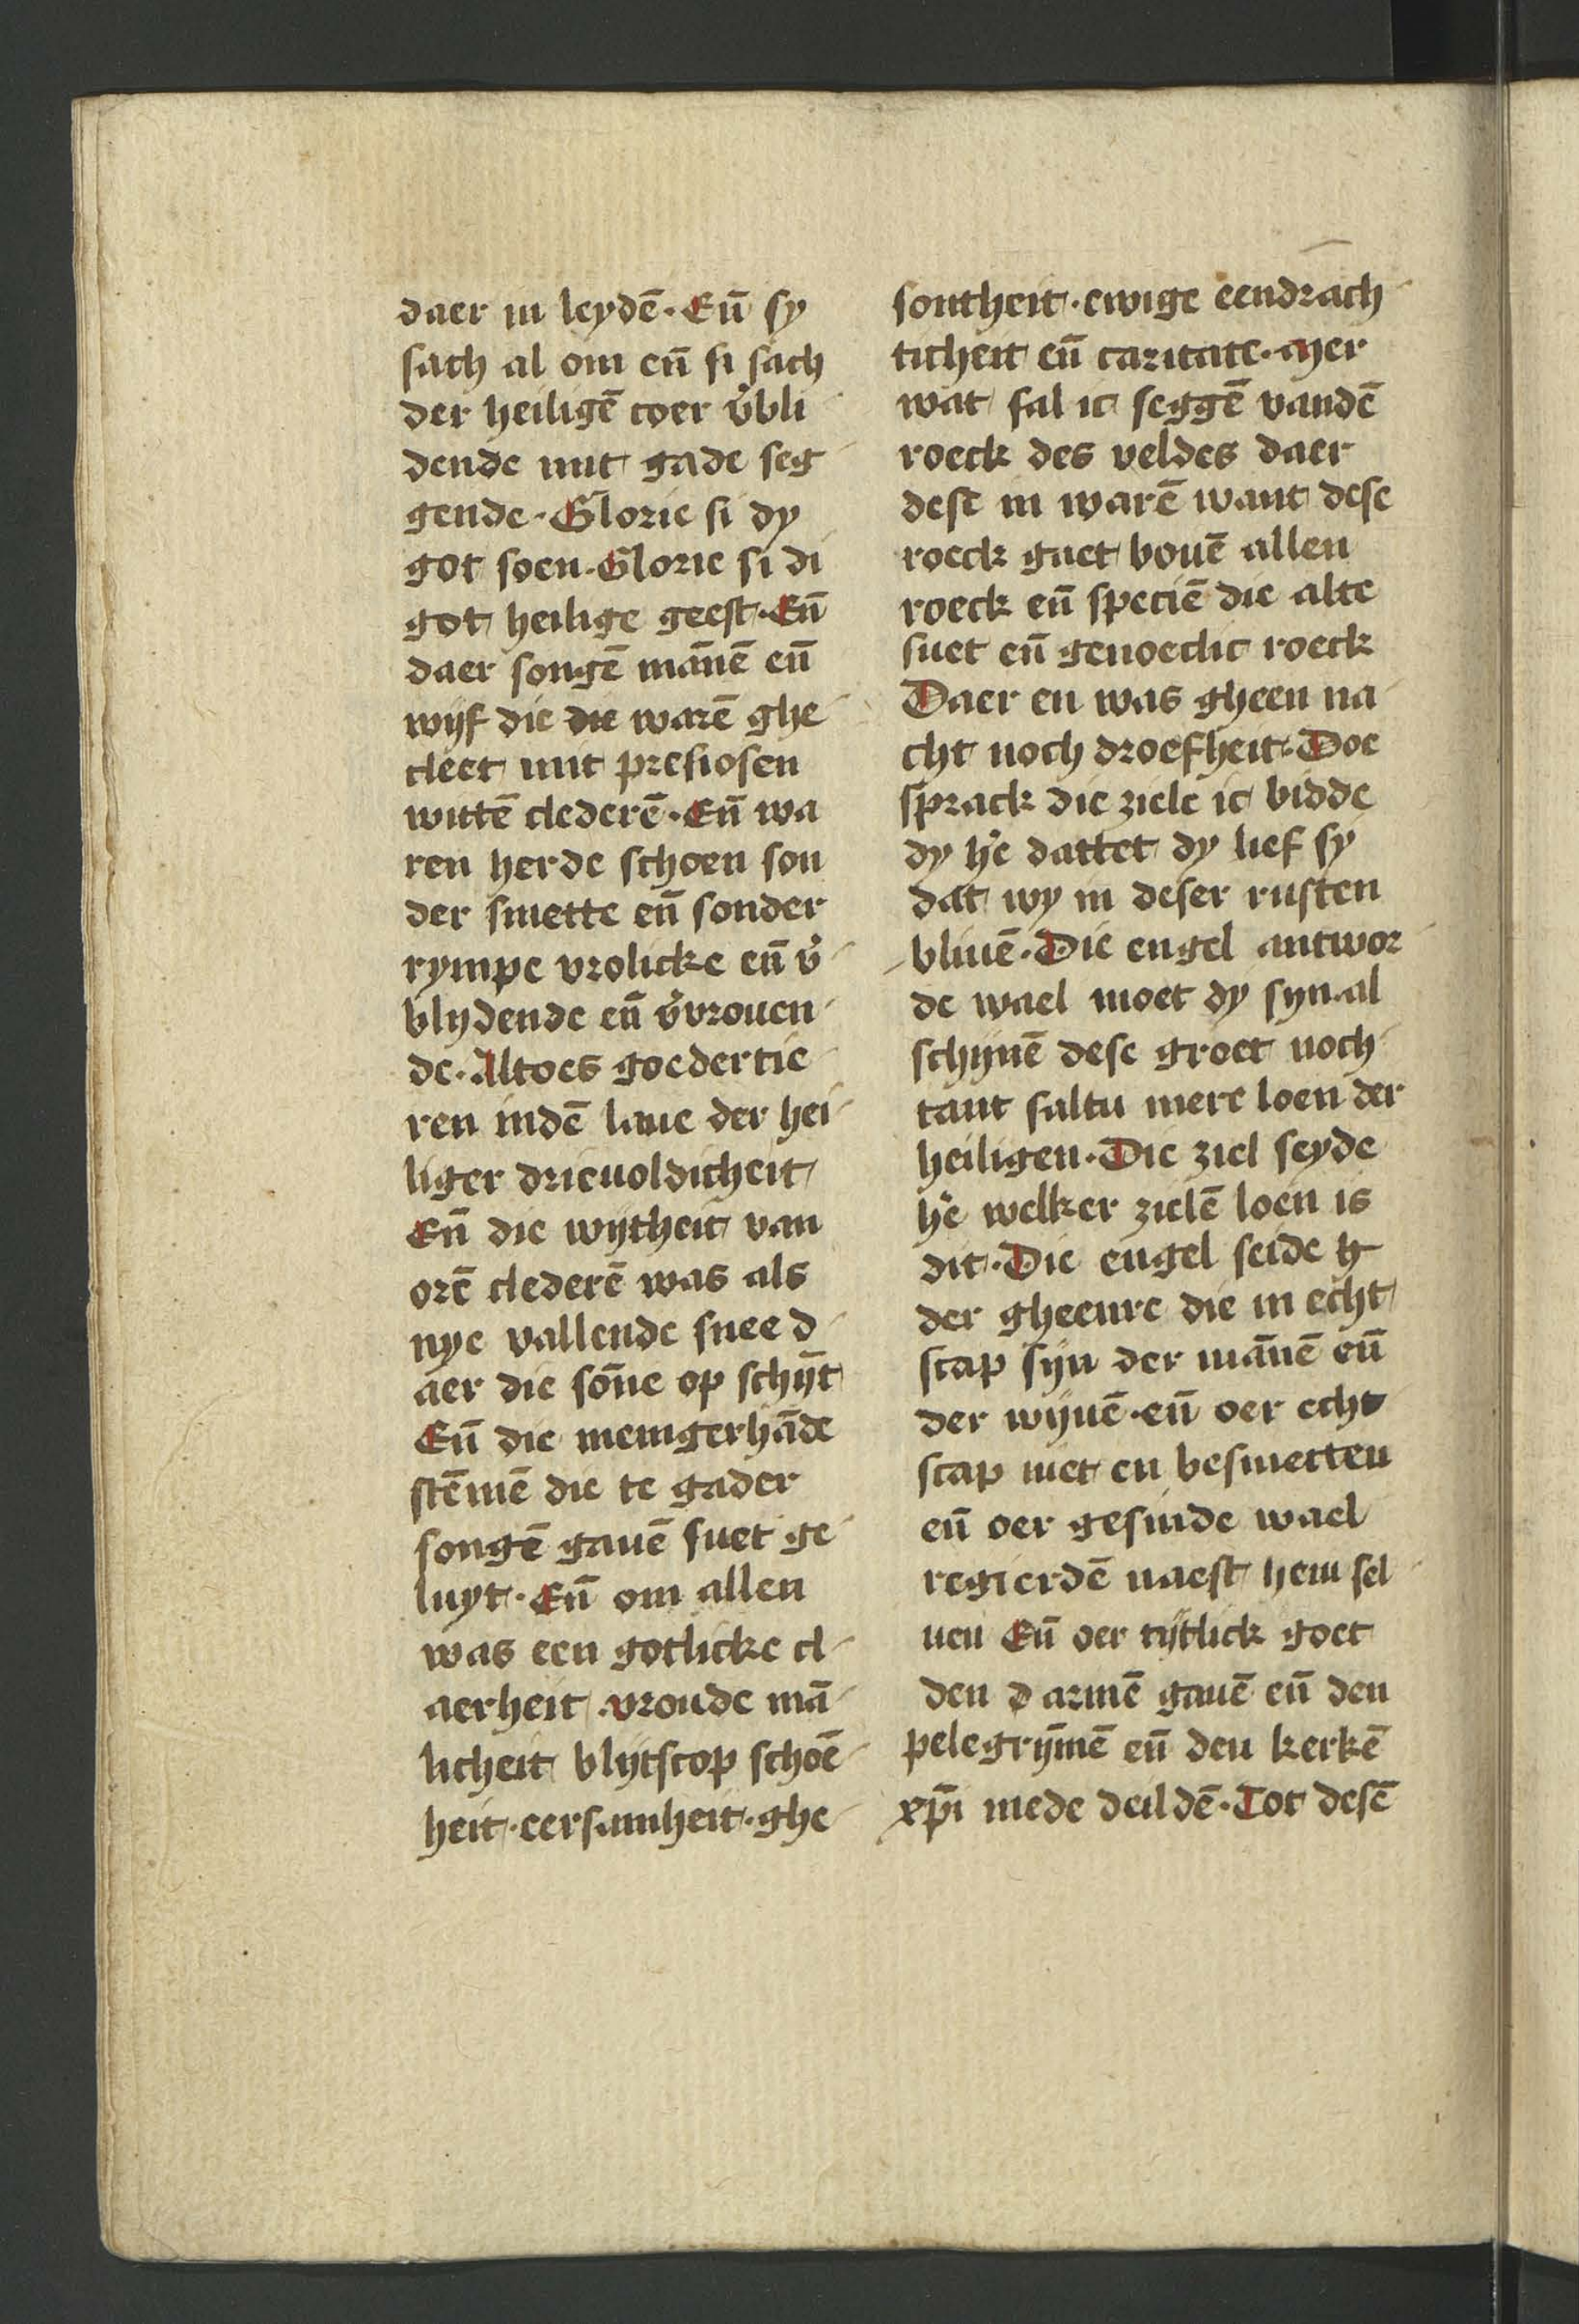 daer in leydē · Eñ sy
sach al om eñ si sach
der heiligē coer v̉bli
dende mit gade seg
gende · Glorie si dy
got soen · Glorie si di
got heilige geest · Eñ
daer songē mānē eñ
wijf die die warē ghe
cleet mit presiosen
wittē clederē · Eñ wa
ren herde schoen son
der smette eñ sonder
rympe vrolicke eñ v̉
blydende eñ v̉vrouen
de · Altoes goedertie
ren indē laue der hei
liger drieuoldicheit
Eñ die wijtheit van
orē clederē was als
nye vallende snee d
aer die sōne op schijt̄
Eñ die menigerhāde
stēmē die te gader
songē gauē suet ge
luyt · Eñ om allen
was een gotlicke cl
aerheit · vroude mā
licheit blijtscop schoē
heit · eersamheit · ghe
sontheit · ewige eendrach
ticheit eñ caritate · Mer
wat sal ic seggē vandē
roeck des veldes daer
dese in warē want dese
roeck gaet bouē allen
roeck eñ speciē die alte
suet eñ genoechlic roeck
Daer en was gheen na
cht noch droefheit · Doe
sprack die ziele ic bidde
dy h̉e dattet dy lief sy
dat wy in deser rusten
bliuē · Die engel antwor
de wael moet dy syn · al
schijnē dese groet noch
tant saltu mere loen der
heiligen · Die ziel seyde
h̉e welker zielē loen is
dit · Die engel seide h
der gheenre die in echt
scap sijn der mānē eñ
der wijuē · eñ oer echt
scap niet en besmetten
eñ oer gesinde wael
regierdē naest hem sel
uen Eñ oer tijtlick goet
den d armē gauē eñ den
pelegrȳmē eñ den kerkē
xp̄i mede deildē · Tot desē